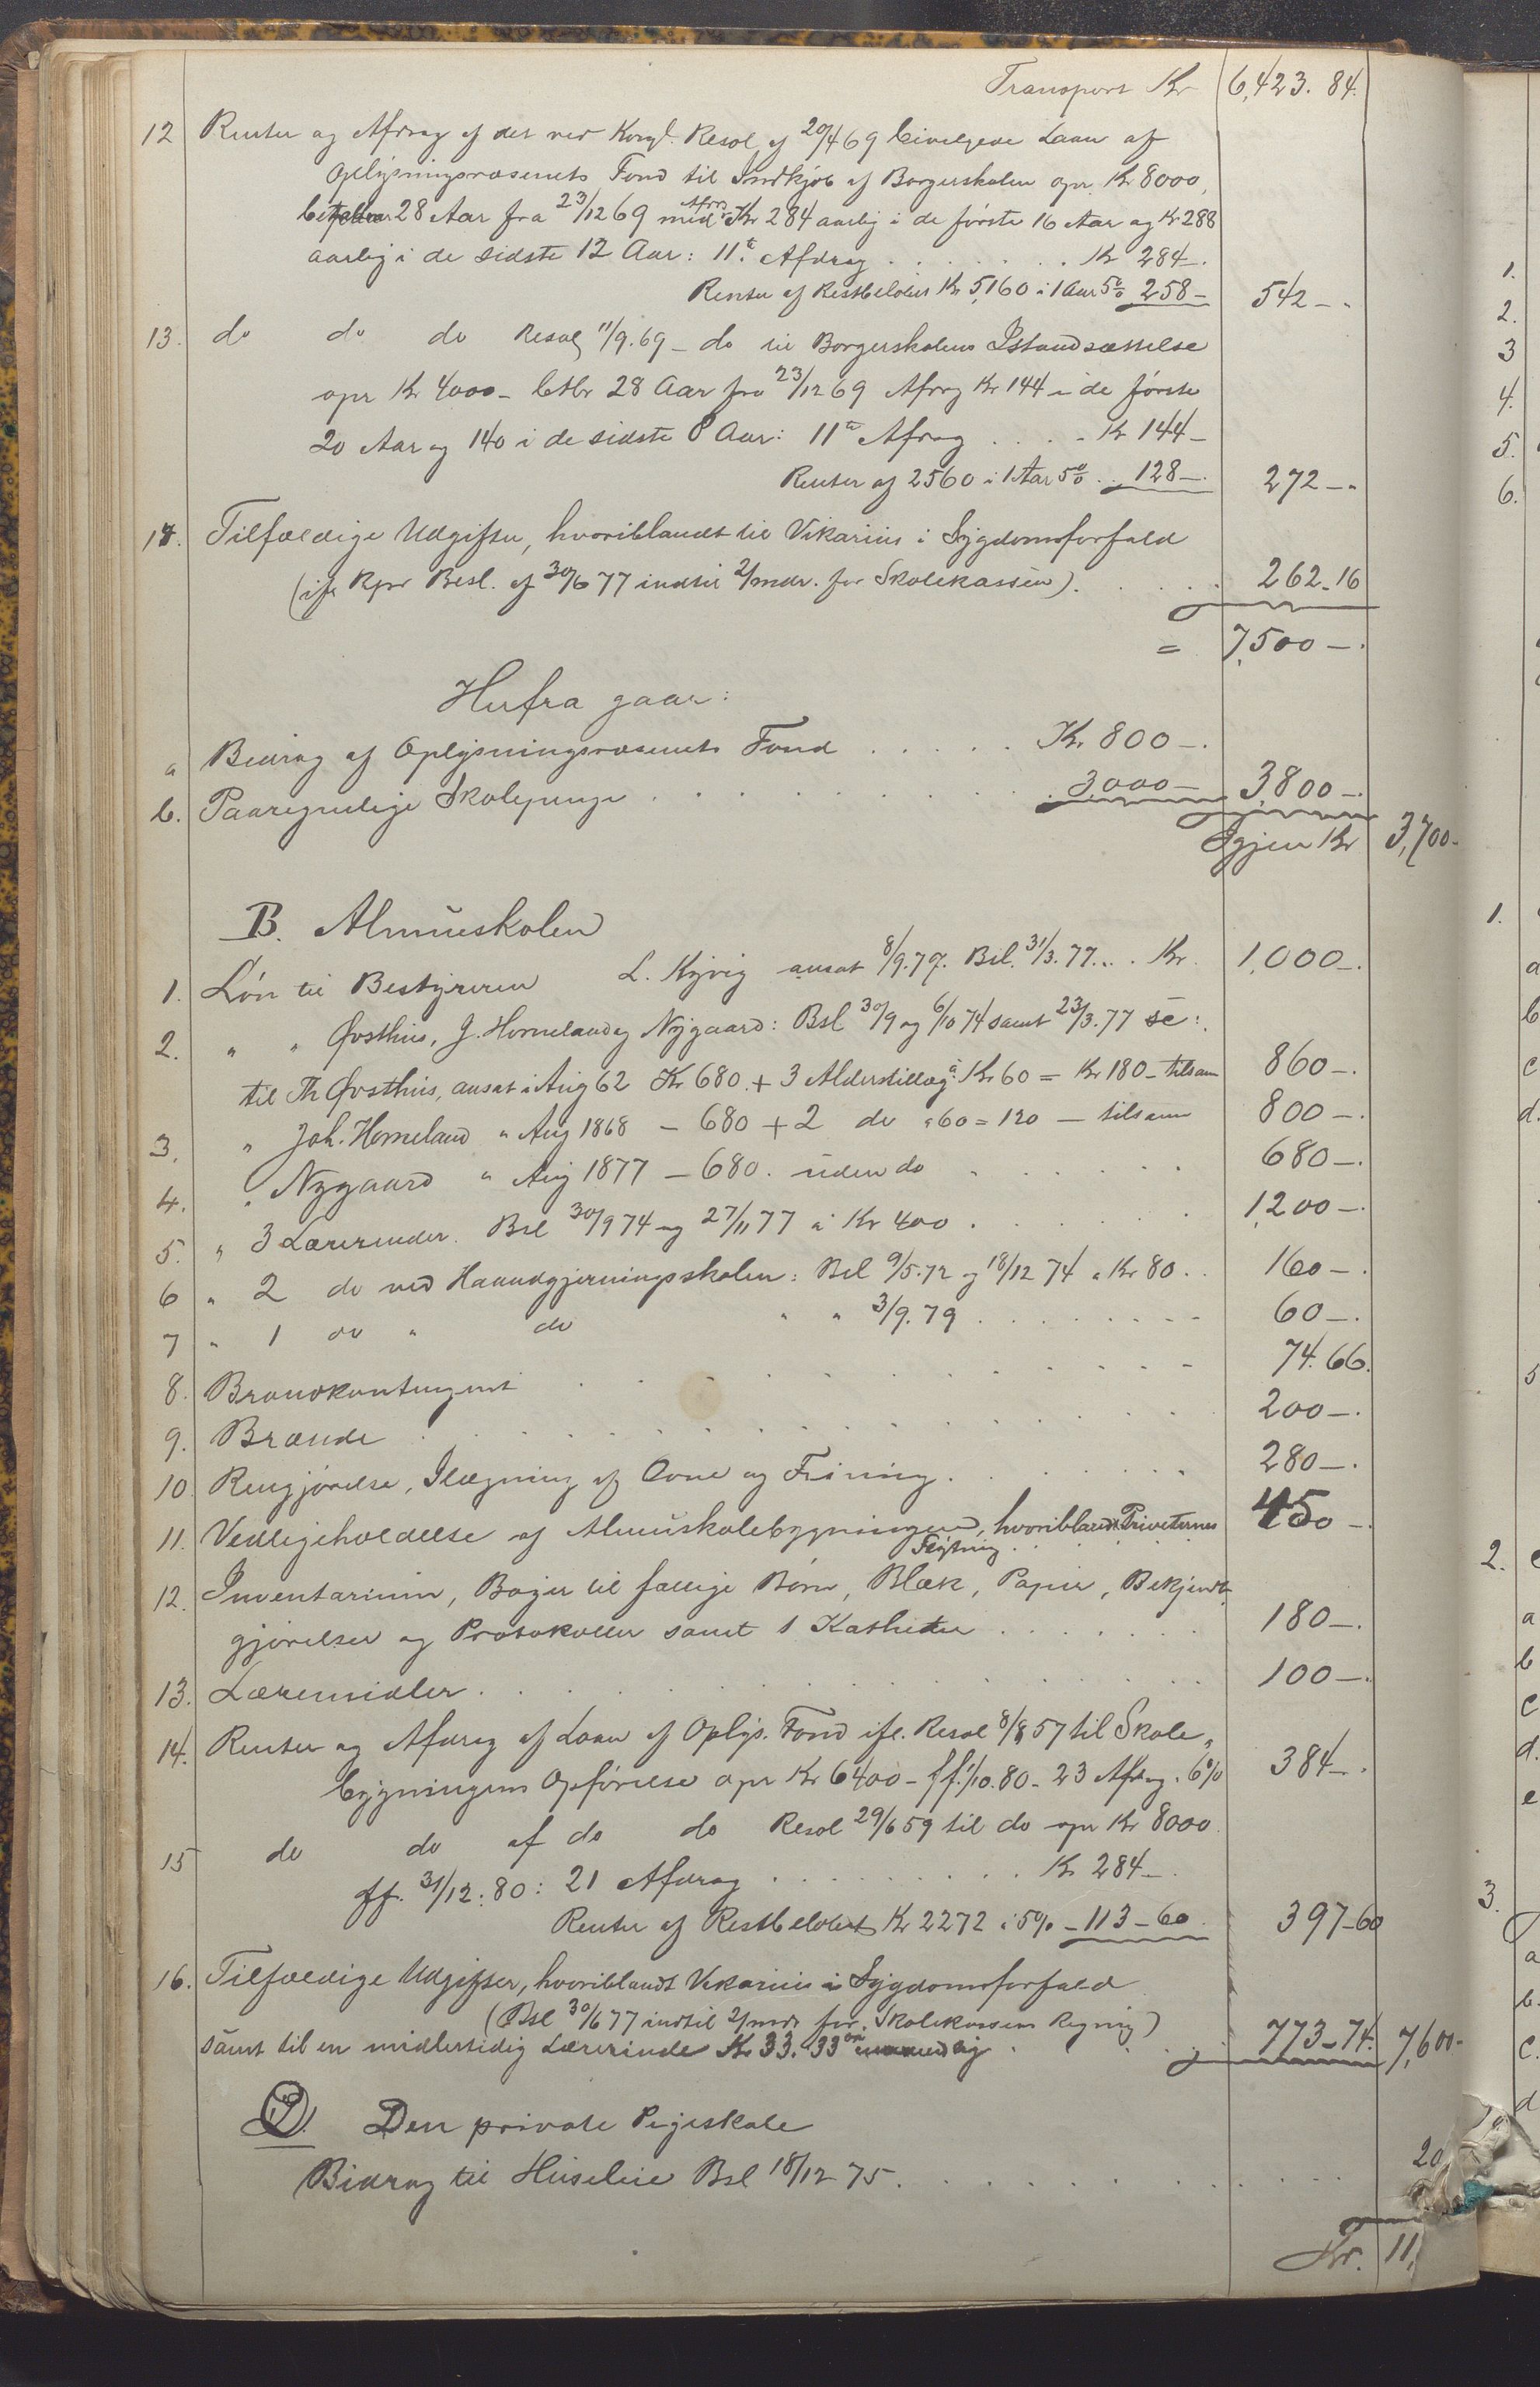 Transport Kr 6,423. 84.
12 Renter og Afdrag af det ved Kongl. Resol. af 20/4 69 bevilgede Laan af
Oplysningsvæsenets Fond til Indkjøb af Borgerskolen opr. Kr 8000,
28 Aar fra 23/12 69 med Afdr. Kr 284 aarlig i de første 16 Aar og Kr 288
aarlig i de sidste 12 Aar: 11te Afdrag . . . . . . . Kr 284-.
Renter af Restbeløbet Kr 5,160 i 1 Aar 5% 258- 542-.
13. do do do Resol 11/9. 69 - do til Borgerskolens Istandsættelse
opr Kr 4000 - betlr 28 Aar fra 23/12 69 Afdrag Kr 144 i de første
20 Aar og 140 i de sidste 8 Aar: 11te Afdrag . . . . Kr 144-
Renter af 2560 i 1 Aar 5% . . 128-. 272-.
14. Tilfældige Udgifter, hvoriblandt til Vikarius i Sygdomsforfald
(ifr Rpr Besl. af 30/6 77 indtil 2/mdr. for Skolekassen) . . . . 262-16
= 7,500-.
Herfra gaar:
a Bidrag af Oplysningsvæsenets Fond . . . . . Kr 800-.
b. Paaregnelige Skolepenge . . . . . . . . . 3,000- 3,800-.
Igjen Kr 3,700-
B. Almueskolen
1. Løn til Bestyreren L. Kyvig ansat 8/9. 77. Bsl. 31/3. 77 . . . Kr. 1,000-.
2. " " Østhus, J. Horneland og Nygaard: Bsl 30/9 og 6/10 74 samt 23/3. 77 sc:
til Th Østhus, ansat i Aug 62 Kr 680 + 3 Alderstillæg à Kr 60 = Kr 180 - tilsam 860-.
3. " Joh. Horneland " Aug 1868 - 680 + 2 do à 60 = 120 - tilsam 800-.
4. " Nygaard " Aug 1877 - 680. uden do . . . . . 680-.
5. " 3 Lærerinder. Bsl 30/9 74 og 27/11 77 à Kr 400 . . . . . . 1,200-.
6 " 2 do ved Haandgjerningsskolen: Bsl 9/5. 72 og 18/12 74 à Kr 80 . . 160-.
7 " 1 do " do " " 3/9. 79 . . . . . . . . 60-.
8. Brandkontingent . . . . . . . . . . 74. 66.
9. Brænde . . . . . . . . . . . . 200-.
10. Rengjørelse, Ilægning af Ovne og Feining . . . . . . . 280-.
11. Vedligeholdelse af Almueskolebygningen, hvoriblandt Priveternes 450-
Flytning . . . . .
12. Inventarium, Bøger til fattige Børn, Blæk, Papir, Bekjendt-
gjørelser og Protokoller samt 1 Katheter . . . . . . . 180-.
13. Læremidler . . . . . . . . . . . . . 100-.
14. Renter og Afdrag af Laan af Oplys. Fond ifl. Resol 8/8 57 til Skole-
bygningens Opførelse opr Kr 6400 - ff. 1/10. 80 - 23 Afdrag. 6% 384-.
15 do do af do do Resol 29/6 59 til do opr Kr 8000.
ff. 31/12. 80: 21 Afdrag . . . . . . . . . Kr 284-.
Renter af Restbeløbet Kr 2272 i 5% - 113-60. 397-60
16. Tilfældige Udgifter, hvoriblandt Vikarius i Sygdomsforfald
(Bsl 30/6 77 indtil 2/mdr for Skolekassens Regning)
samt til en midlertidig Lærerinde Kr 33. 33 øre . . . . 773-74. 7,600-
D. Den private Pigeskole
Bidrag til Husleie Bsl 18/12 75 . . . . . . . . . 20
Kr. 11,
1.
2.
3
4.
5.
6.
1.
a
b
c
d.
2.
a
b
c
d.
e
3.
a
b.
c.
d